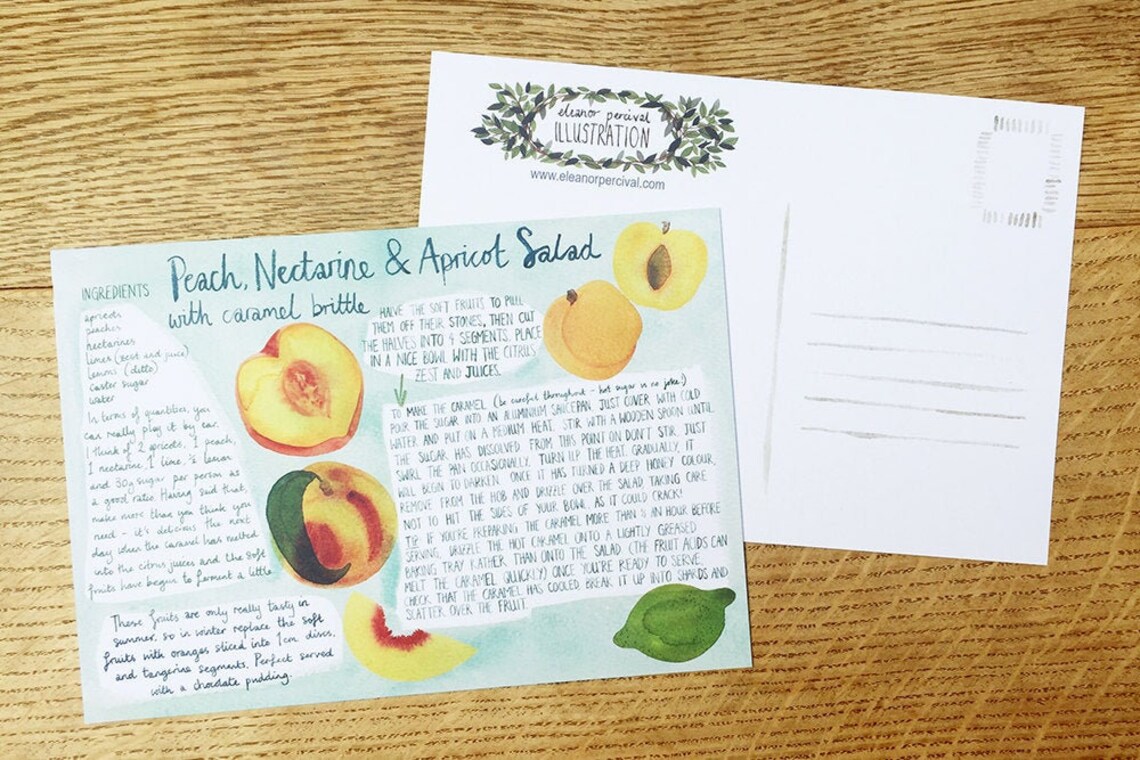 eleanor percival
ILLUSTRATION
www.eleanorpercival.com
Peach, Nectarine & Apricot Salad
with caramel brittle
INGREDIENTS
apricots
peaches
nectarines
limes (zest and juice)
lemons (ditto)
caster sugar
water
In terms of quantities, you
can really play it by ear.
I think of 2 apricots, 1 peach,
1 nectarine, 1 lime, ½ lemon
and 30g sugar per person as
a good ratio. Having said that,
make more than you think you
need - it's delicious the next
day when the caramel has melted
into the citrus juices and the soft
fruits have begun to ferment a little
These fruits are only really tasty in
summer, so in winter replace the soft
fruits with oranges sliced into 1cm discs,
and tangerine segments. Perfect served
with a chocolate pudding.
HALVE THE SOFT FRUITS TO PULL
THEM OFF THEIR STONES, THEN CUT
THE HALVES INTO 4 SEGMENTS. PLACE
IN A NICE BOWL WITH THE CITRUS
ZEST AND JUICES.
TO MAKE THE CARAMEL (be careful throughout - hot sugar is no joke!)
POUR THE SUGAR INTO AN ALUMINIUM SAUCEPAN, JUST COVER WITH COLD
WATER AND PUT ON A MEDIUM HEAT. STIR WITH A WOODEN SPOON UNTIL
THE SUGAR HAS DISSOLVED. FROM THIS POINT ON DON'T STIR, JUST
SWIRL THE PAN OCCASIONALLY. TURN UP THE HEAT. GRADUALLY, IT
WILL BEGIN TO DARKEN. ONCE IT HAS TURNED A DEEP HONEY COLOUR,
REMOVE FROM THE HOB AND DRIZZLE OVER THE SALAD, TAKING CARE
NOT TO HIT THE SIDES OF YOUR BOWL, AS IT COULD CRACK!
TIP: IF YOU'RE PREPARING THE CARAMEL MORE THAN ½ AN HOUR BEFORE
SERVING, DRIZZLE THE HOT CARAMEL ONTO A LIGHTLY GREASED
BAKING TRAY RATHER THAN ONTO THE SALAD (THE FRUIT ACIDS CAN
MELT THE CARAMEL QUICKLY) ONCE YOU'RE READY TO SERVE,
CHECK THAT THE CARAMEL HAS COOLED, BREAK IT UP INTO SHARDS AND
SCATTER OVER THE FRUIT.